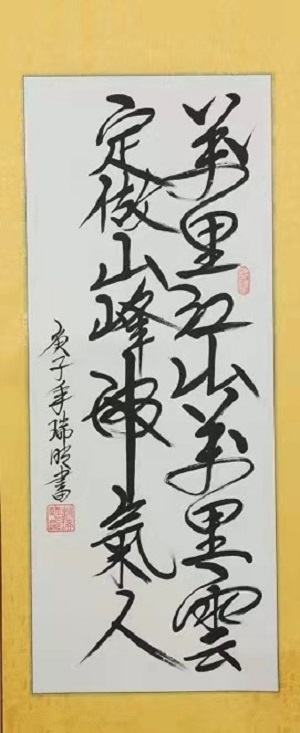 萬里江山萬里雲
定做山峰氣人
庚子年瑞書